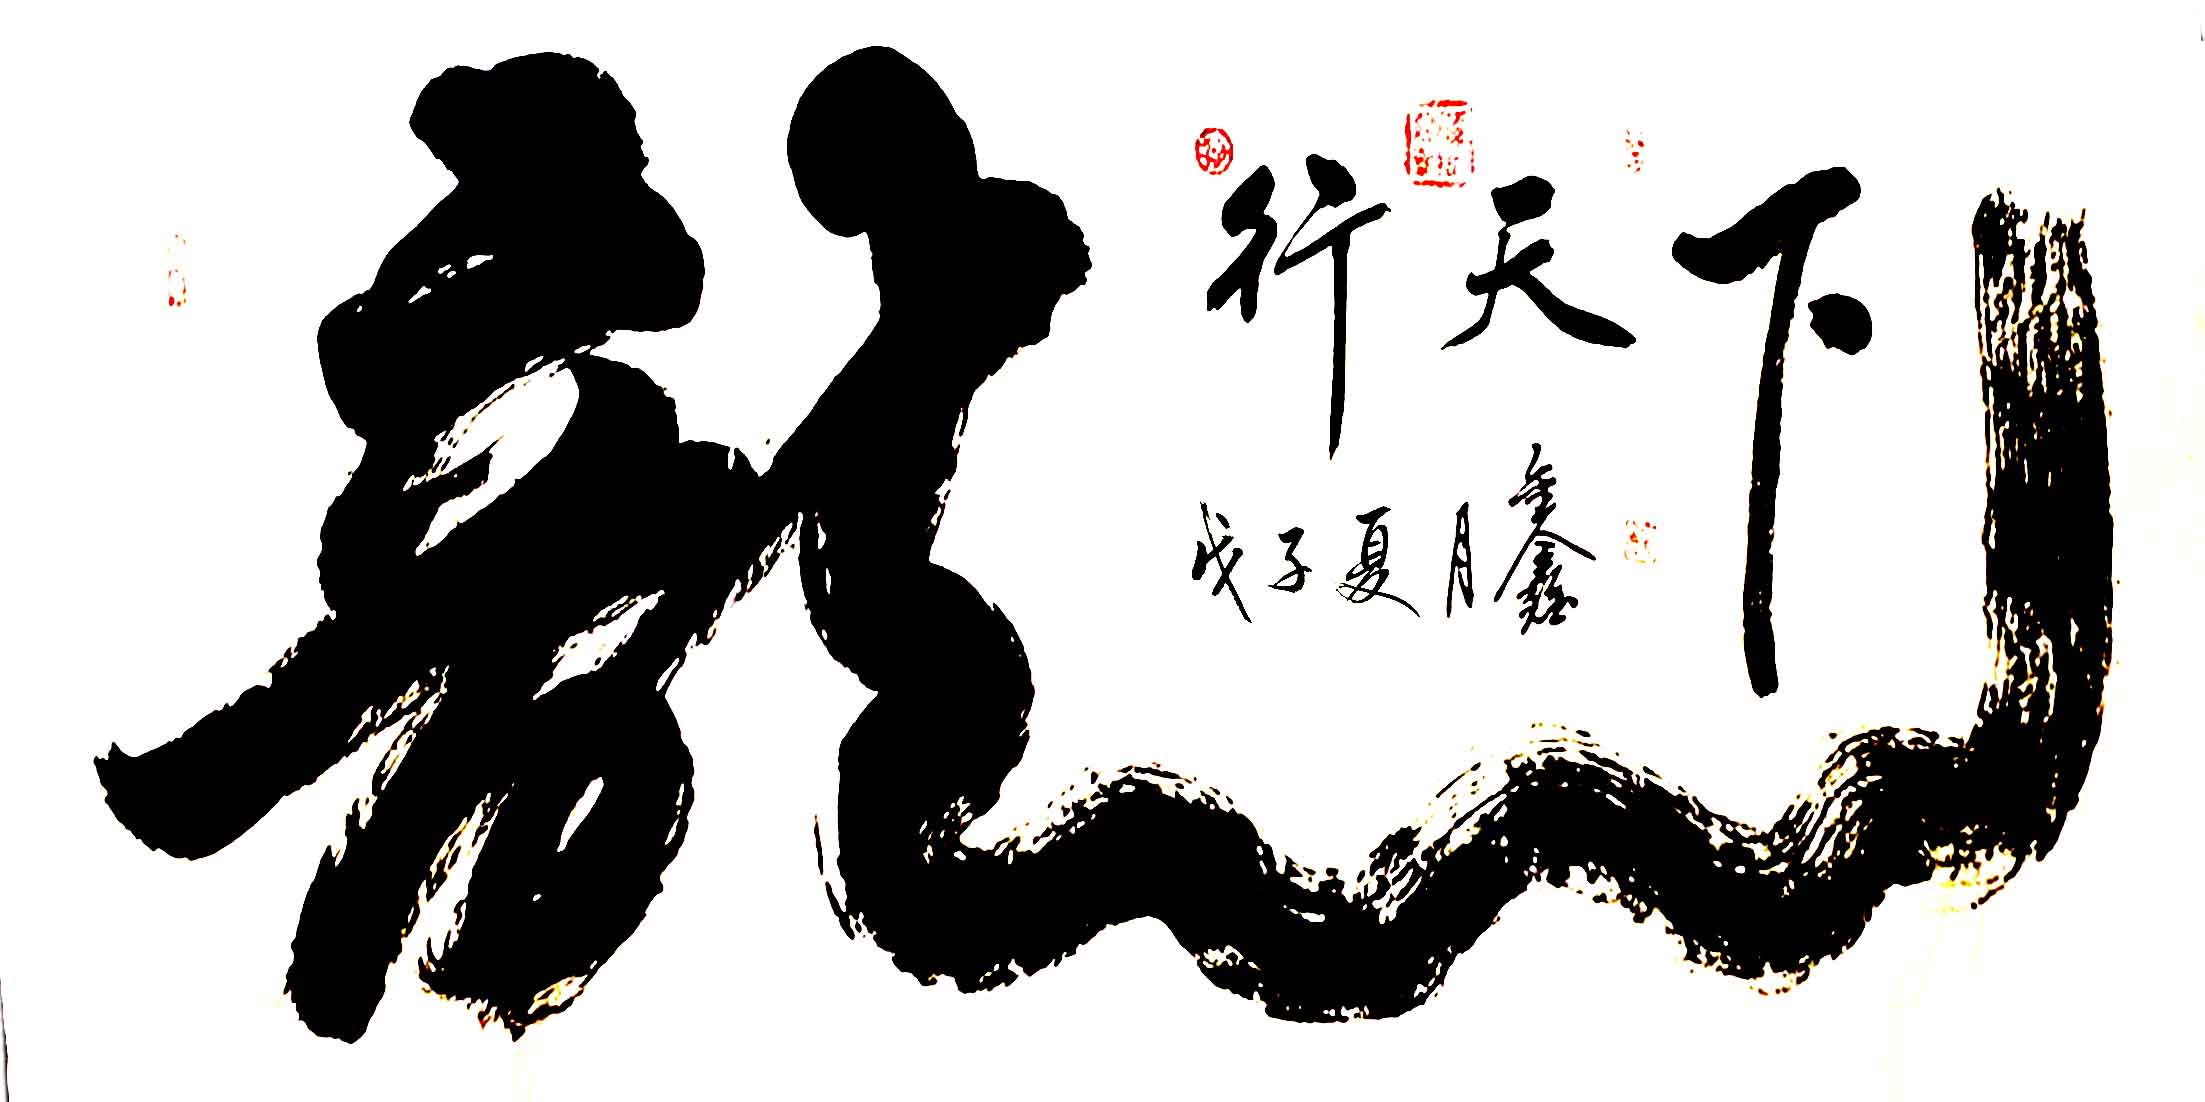 龍
行天下
戊子夏月鑫